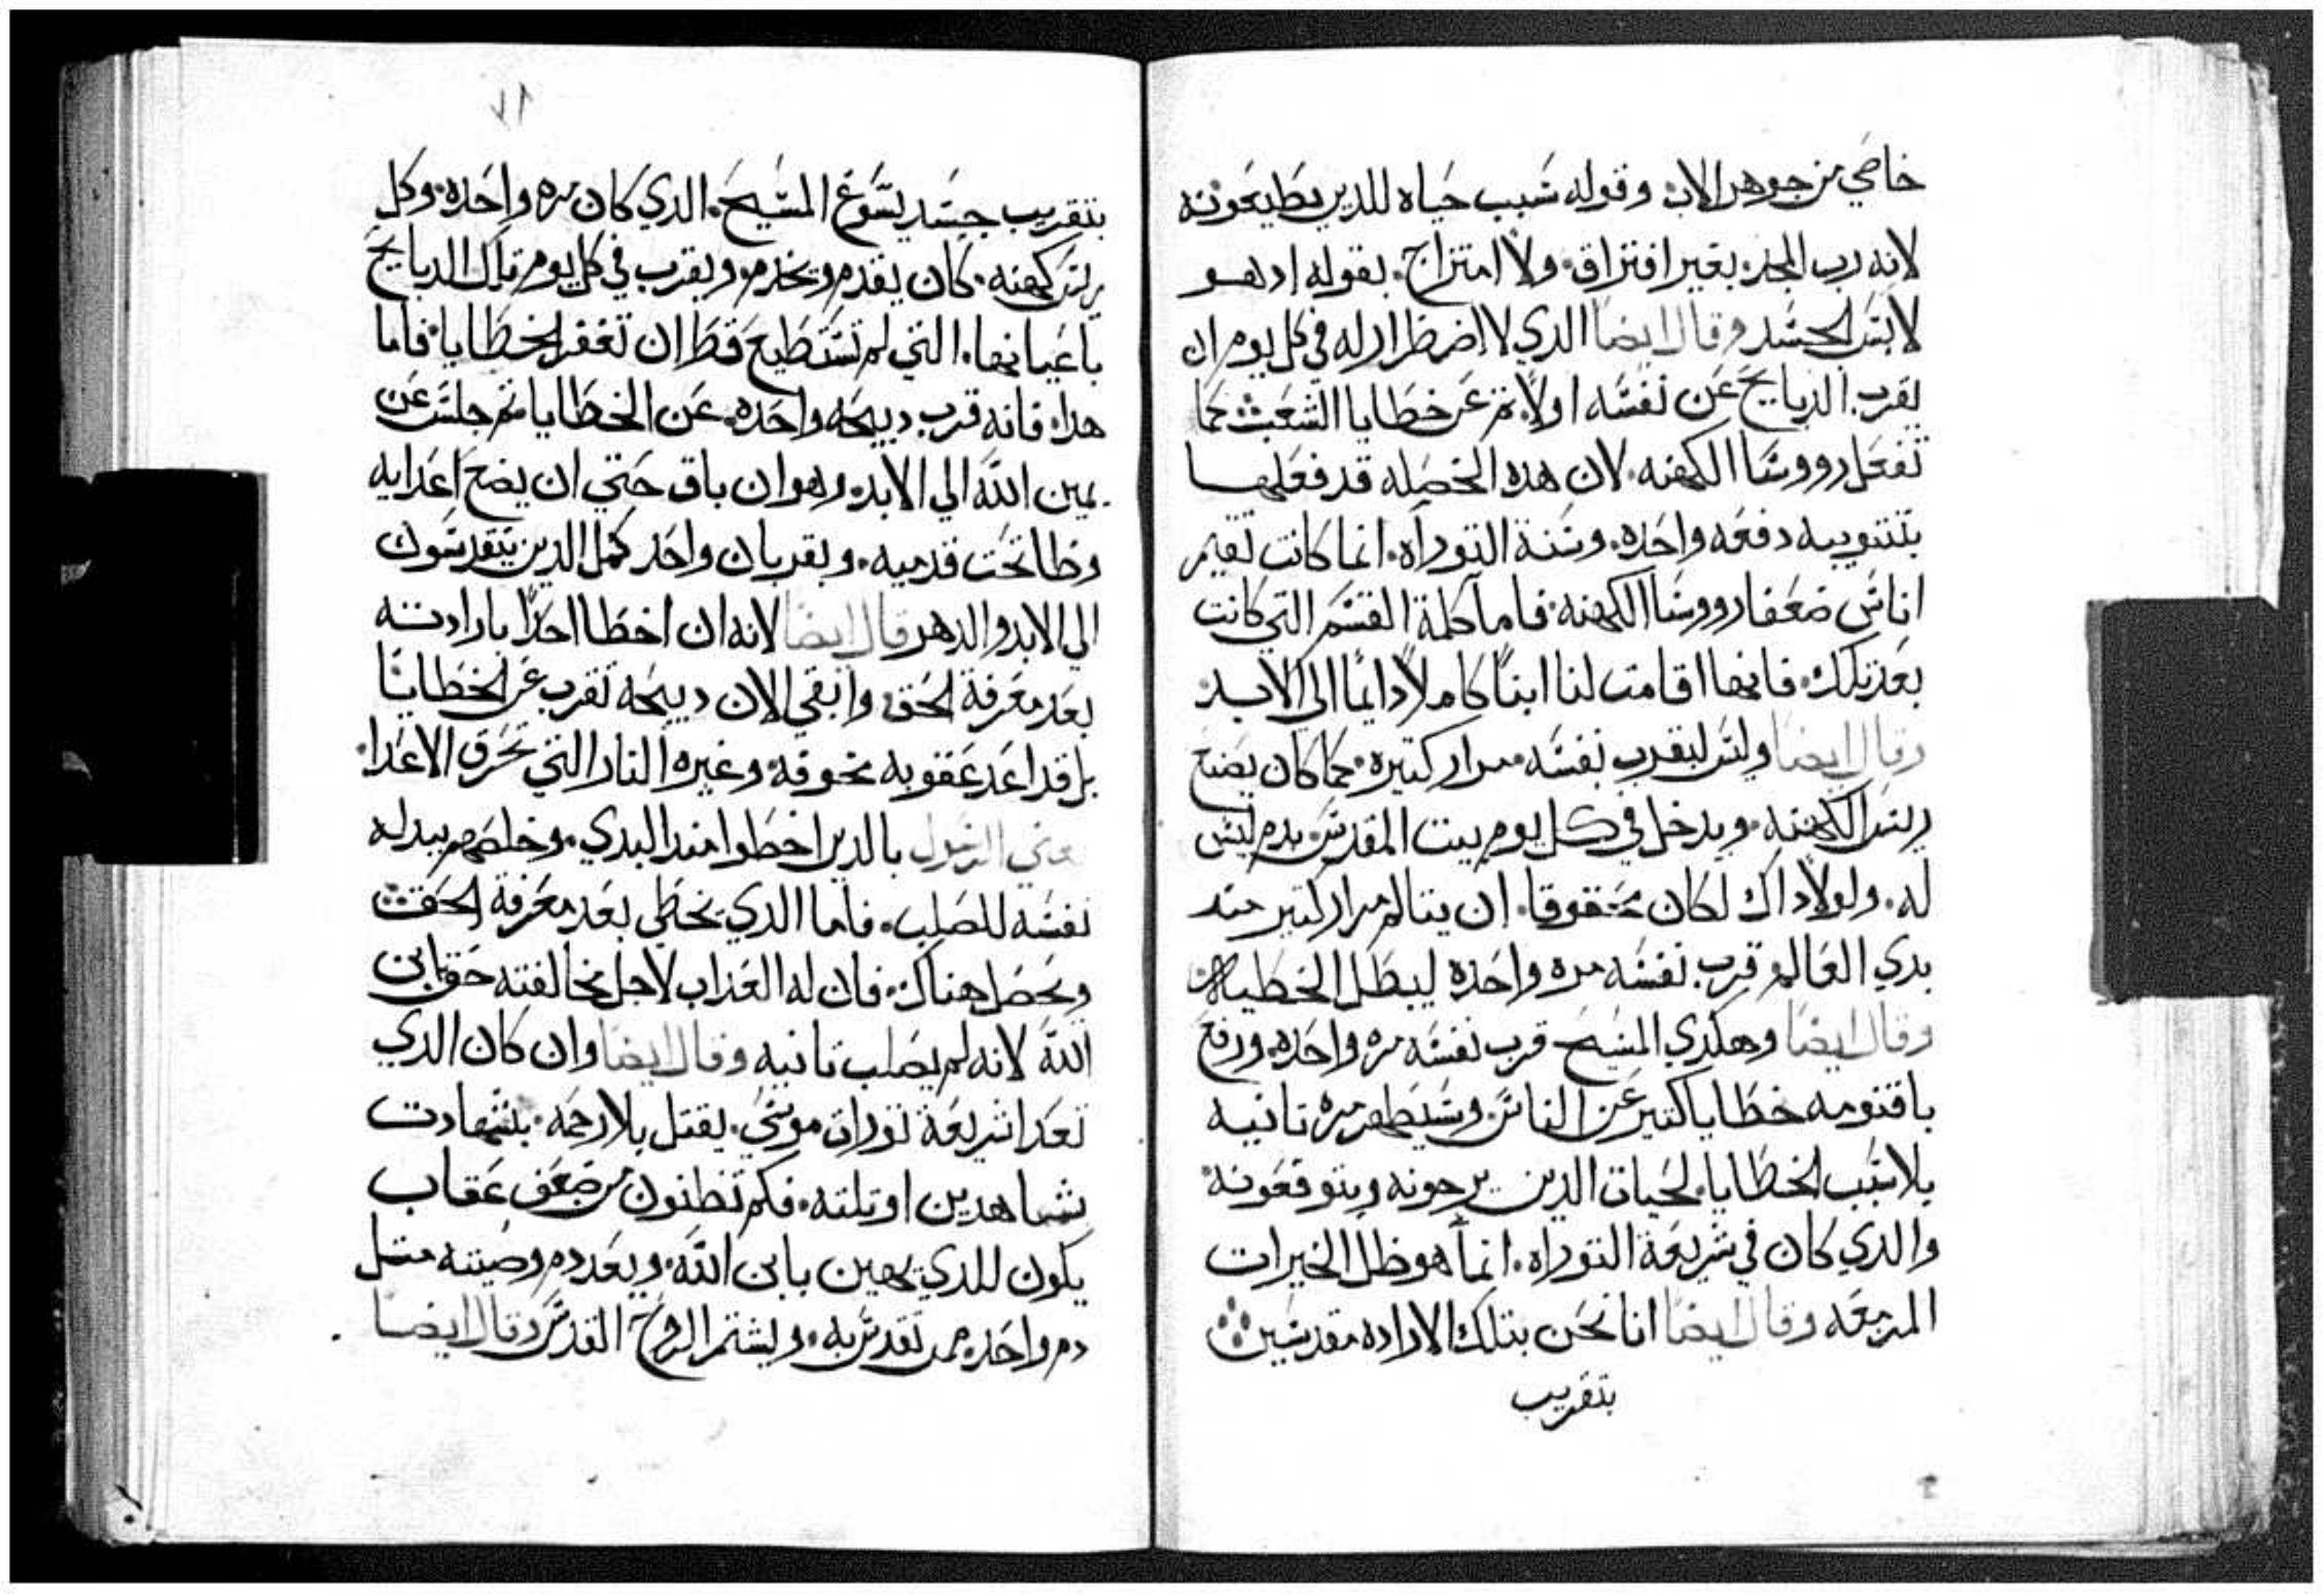 خاصي من جوهر الاب وقوله سبب حياه للدين يطيعونه
لانه رب المجد بغير افتراق ولا امتزاج بقوله اد هو
لابس الجسد وقال ايضا الدي لا اضطرار له في كل يوم ان
يقرب الدبايح عن نفسه اولا تم عن خطايا الشعب كما
تفعل رووسا الكهنه لان هده الخصله قد فعلها
دفعه واحده وسنة التوراه انما كانت تقيم
اناس ضعفا رووسا الكهنه فاما كلمة القسم التي كانت
بعد تلك فانها اقامت لنا ابنا كاملا دايما الى الابد
وقال ايضا وليس ليقرب نفسه مرار كتيره كما كان يصنع
ريس الكهنه ويدخل في كل يوم بيت المقدس بدم ليس
له ولولا داك لكان محقوقا ان يتالم مرار كتير مند
بدي العالم قرب نفسه مره واحده ليبطل الخطيه
وقال ايضا وهكدي المسيح قرب نفسه مره واحده ورفع
باقنومه خطايا كتير عن الناس وسيظهر مره تانيه
بلا سبب الخطايا لحيات الدين يرجونه ويتوقعونه
والدي كان في شريعة التوراه انما هو ظل الخيرات
المزمعه وقال ايضا انا نحن بتلك الاراده مقدسين
بتقريب
١٧
بتقريب جسد يسوع المسيح الدي كان مره واحده وكل
ريس كهنه كان يقدم ويخدم ويقرب في كل يوم تلك الدبايح
باعيانها التي لم تستطيع قط ان تغفر الخطايا فاما
هدا فانه قرب دبيحه واحده عن الخطايا تم جلس عن
يمين الله الي الابد وهوان باق حتي ان يضع اعدايه
وطا تحت قدميه وبقربان واحد كمل الدين يتقدسون
الي الابد والدهر قال ايضا لانه ان اخطا احدا بارادته
بعد معرفة الحق وابقي الان دبيحه تقرب عن الخطايا
بل قد اعد عقوبه مخوفه وغيره النار التي تحرق الاعدا
عني الرسول بالدين اخطوا مند البدي وخلصهم ببدله
نفسه للصلب فاما الدي يخطي بعد معرفة الحق
ويحصل هناك فان له العداب لاجل مخالفته حق ابن
الله لانه لم يصلب تانيه وقال ايضا وان كان الدي
تعدا شريعة تورات موسي يقتل بلا رحمه بشهادت
شاهدين او تلته فكم تظنون من ضعف عقاب
يكون للدي يهين بابن الله ويعد دم وصيته متل
دم واحده ممن تقدس به ويشتم الروح القدس وقال ايضا